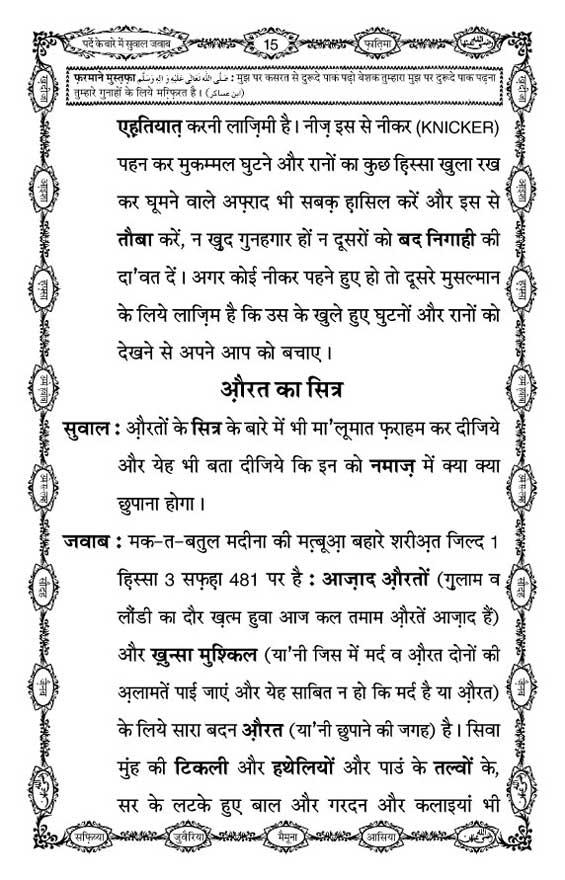 पर्दे के बारे में सुवाल जवाब
15
फ़ातिमा
फ़रमाने मुस्तफ़ा صَلَّى اللهُ تَعَالٰى عَلَيْهِ وَاٰلِهٖ وَسَلَّم : मुझ पर कसरत से दुरूदे पाक पढ़ो बेशक तुम्हारा मुझ पर दुरूदे पाक पढ़ना
तुम्हारे गुनाहों के लिये मग़्फ़िरत है। (ابن عساكر)
एहतियात़ करनी लाज़िमी है। नीज़ इस से नीकर (KNICKER)
पहन कर मुकम्मल घुटने और रानों का कुछ हिस्सा खुला रख
कर घूमने वाले अफ़्राद भी सबक़ ह़ासिल करें और इस से
तौबा करें, न खुद गुनहगार हों न दूसरों को बद निगाही की
दा'वत दें। अगर कोई नीकर पहने हुए हो तो दूसरे मुसल्मान
के लिये लाज़िम है कि उस के खुले हुए घुटनों और रानों को
देखने से अपने आप को बचाए।
औ़रत का सित्र
सुवाल : औ़रतों के सित्र के बारे में भी मा'लूमात फ़राहम कर दीजिये
और येह भी बता दीजिये कि इन को नमाज़ में क्या क्या
छुपाना होगा।
जवाब : मक-त-बतुल मदीना की मत़्बूआ़ बहारे शरीअ़त जिल्द 1
हिस्सा 3 सफ़ह़ा 481 पर है : आज़ाद औ़रतों (गुलाम व
लौंडी का दौर ख़त्म हुवा आज कल तमाम औ़रतें आज़ाद हैं)
और ख़ुन्सा मुश्किल (या'नी जिस में मर्द व औ़रत दोनों की
अ़लामतें पाई जाएं और येह साबित न हो कि मर्द है या औ़रत)
के लिये सारा बदन औ़रत (या'नी छुपाने की जगह) है। सिवा
मुंह की टिकली और हथेलियों और पाउं के तल्वों के,
सर के लटके हुए बाल और गरदन और कलाइयां भी
सफ़िय्या
जुवैरिया
मैमूना
आसिया